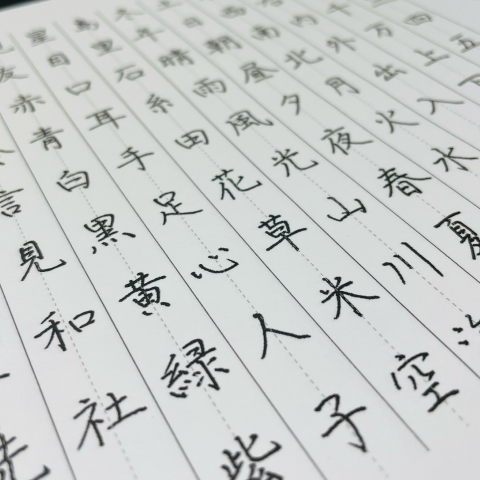 五 四
千 万 上 下
内 外 出 入
西 南 北 月 火 水
日 朝 昼 夕 夜 春 夏
木 年 晴 雨 風 光 山 川
里 石 糸 田 花 草 米 空
目 口 耳 手 足 心 人 子
赤 青 白 黒 黄 緑 紫
言 見 和 社